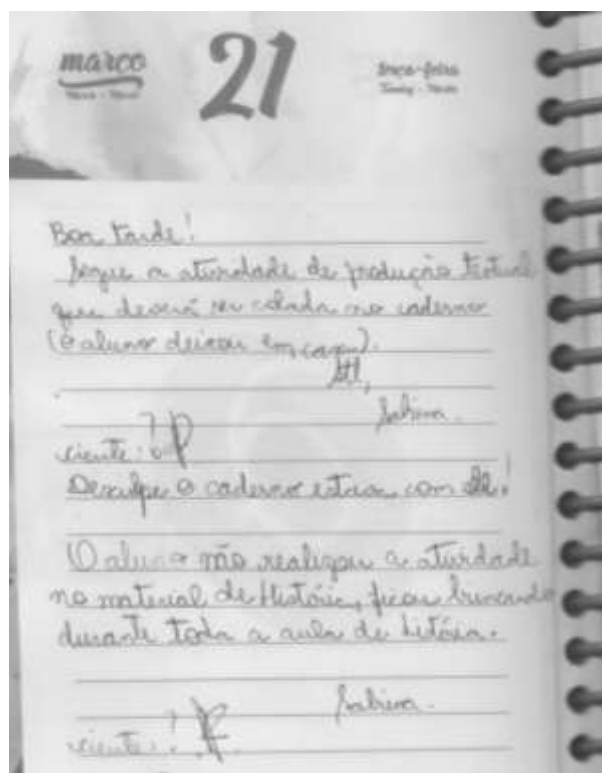 março
21
terça-feira
Boa tarde!
Segue a atividade de produção textual
que deverá ser colada no caderno
(o aluno deixou em casa).
Att,
Sabrina.
ciente:
Desculpe o caderno estava com ele!
O aluno não realizou a atividade
no material de História, ficou brincando
durante toda a aula de história.
Sabrina.
ciente: